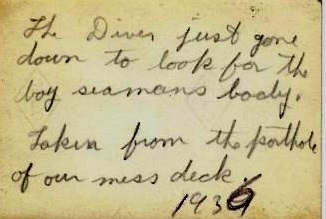 The Diver just gone
down to look for the
boy seamans body.
Taken from the porthole
of our mess deck.
1936